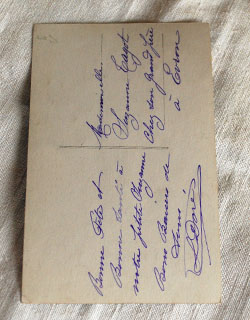 Bonne fête et
Bonne Santé à
notre petite Suzanne
Bons Baisers de
tous
Mademoiselle
Suzanne
Chez son grand père
à Evron